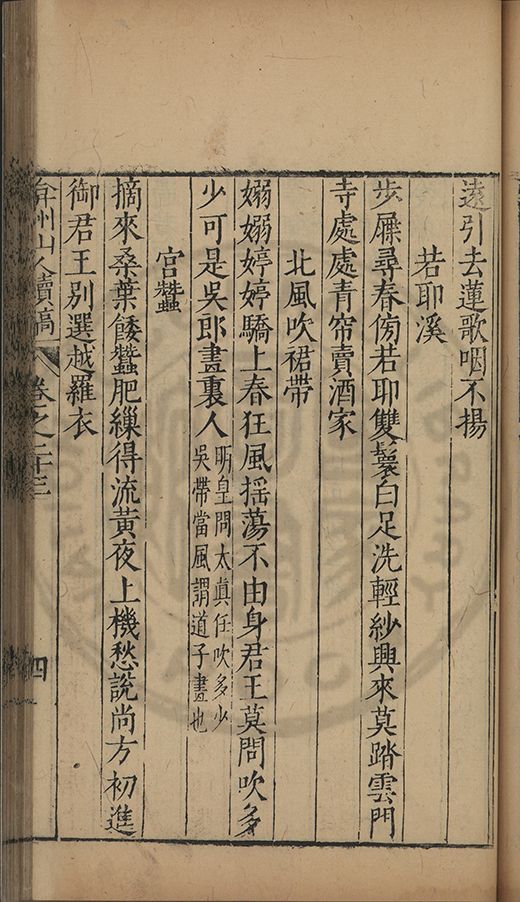 遠引去蓮歌咽不揚
若耶溪
步屧尋春傍若耶雙鬟白足洗輕紗興來莫踏雲門
寺處處青帘賣酒家
北風吹裙帶
嫋嫋婷婷驕上春狂風摇蕩不由身君王莫問吹多
少可是吳郎畫裏人明皇問太眞任吹多少吳帶當風謂道子畫也
宮蠶
摘來桑葉餧蠶肥繅得流黃夜上機愁說尚方初進
御君王別選越羅衣
弇州山人續稿 卷之二十三 四